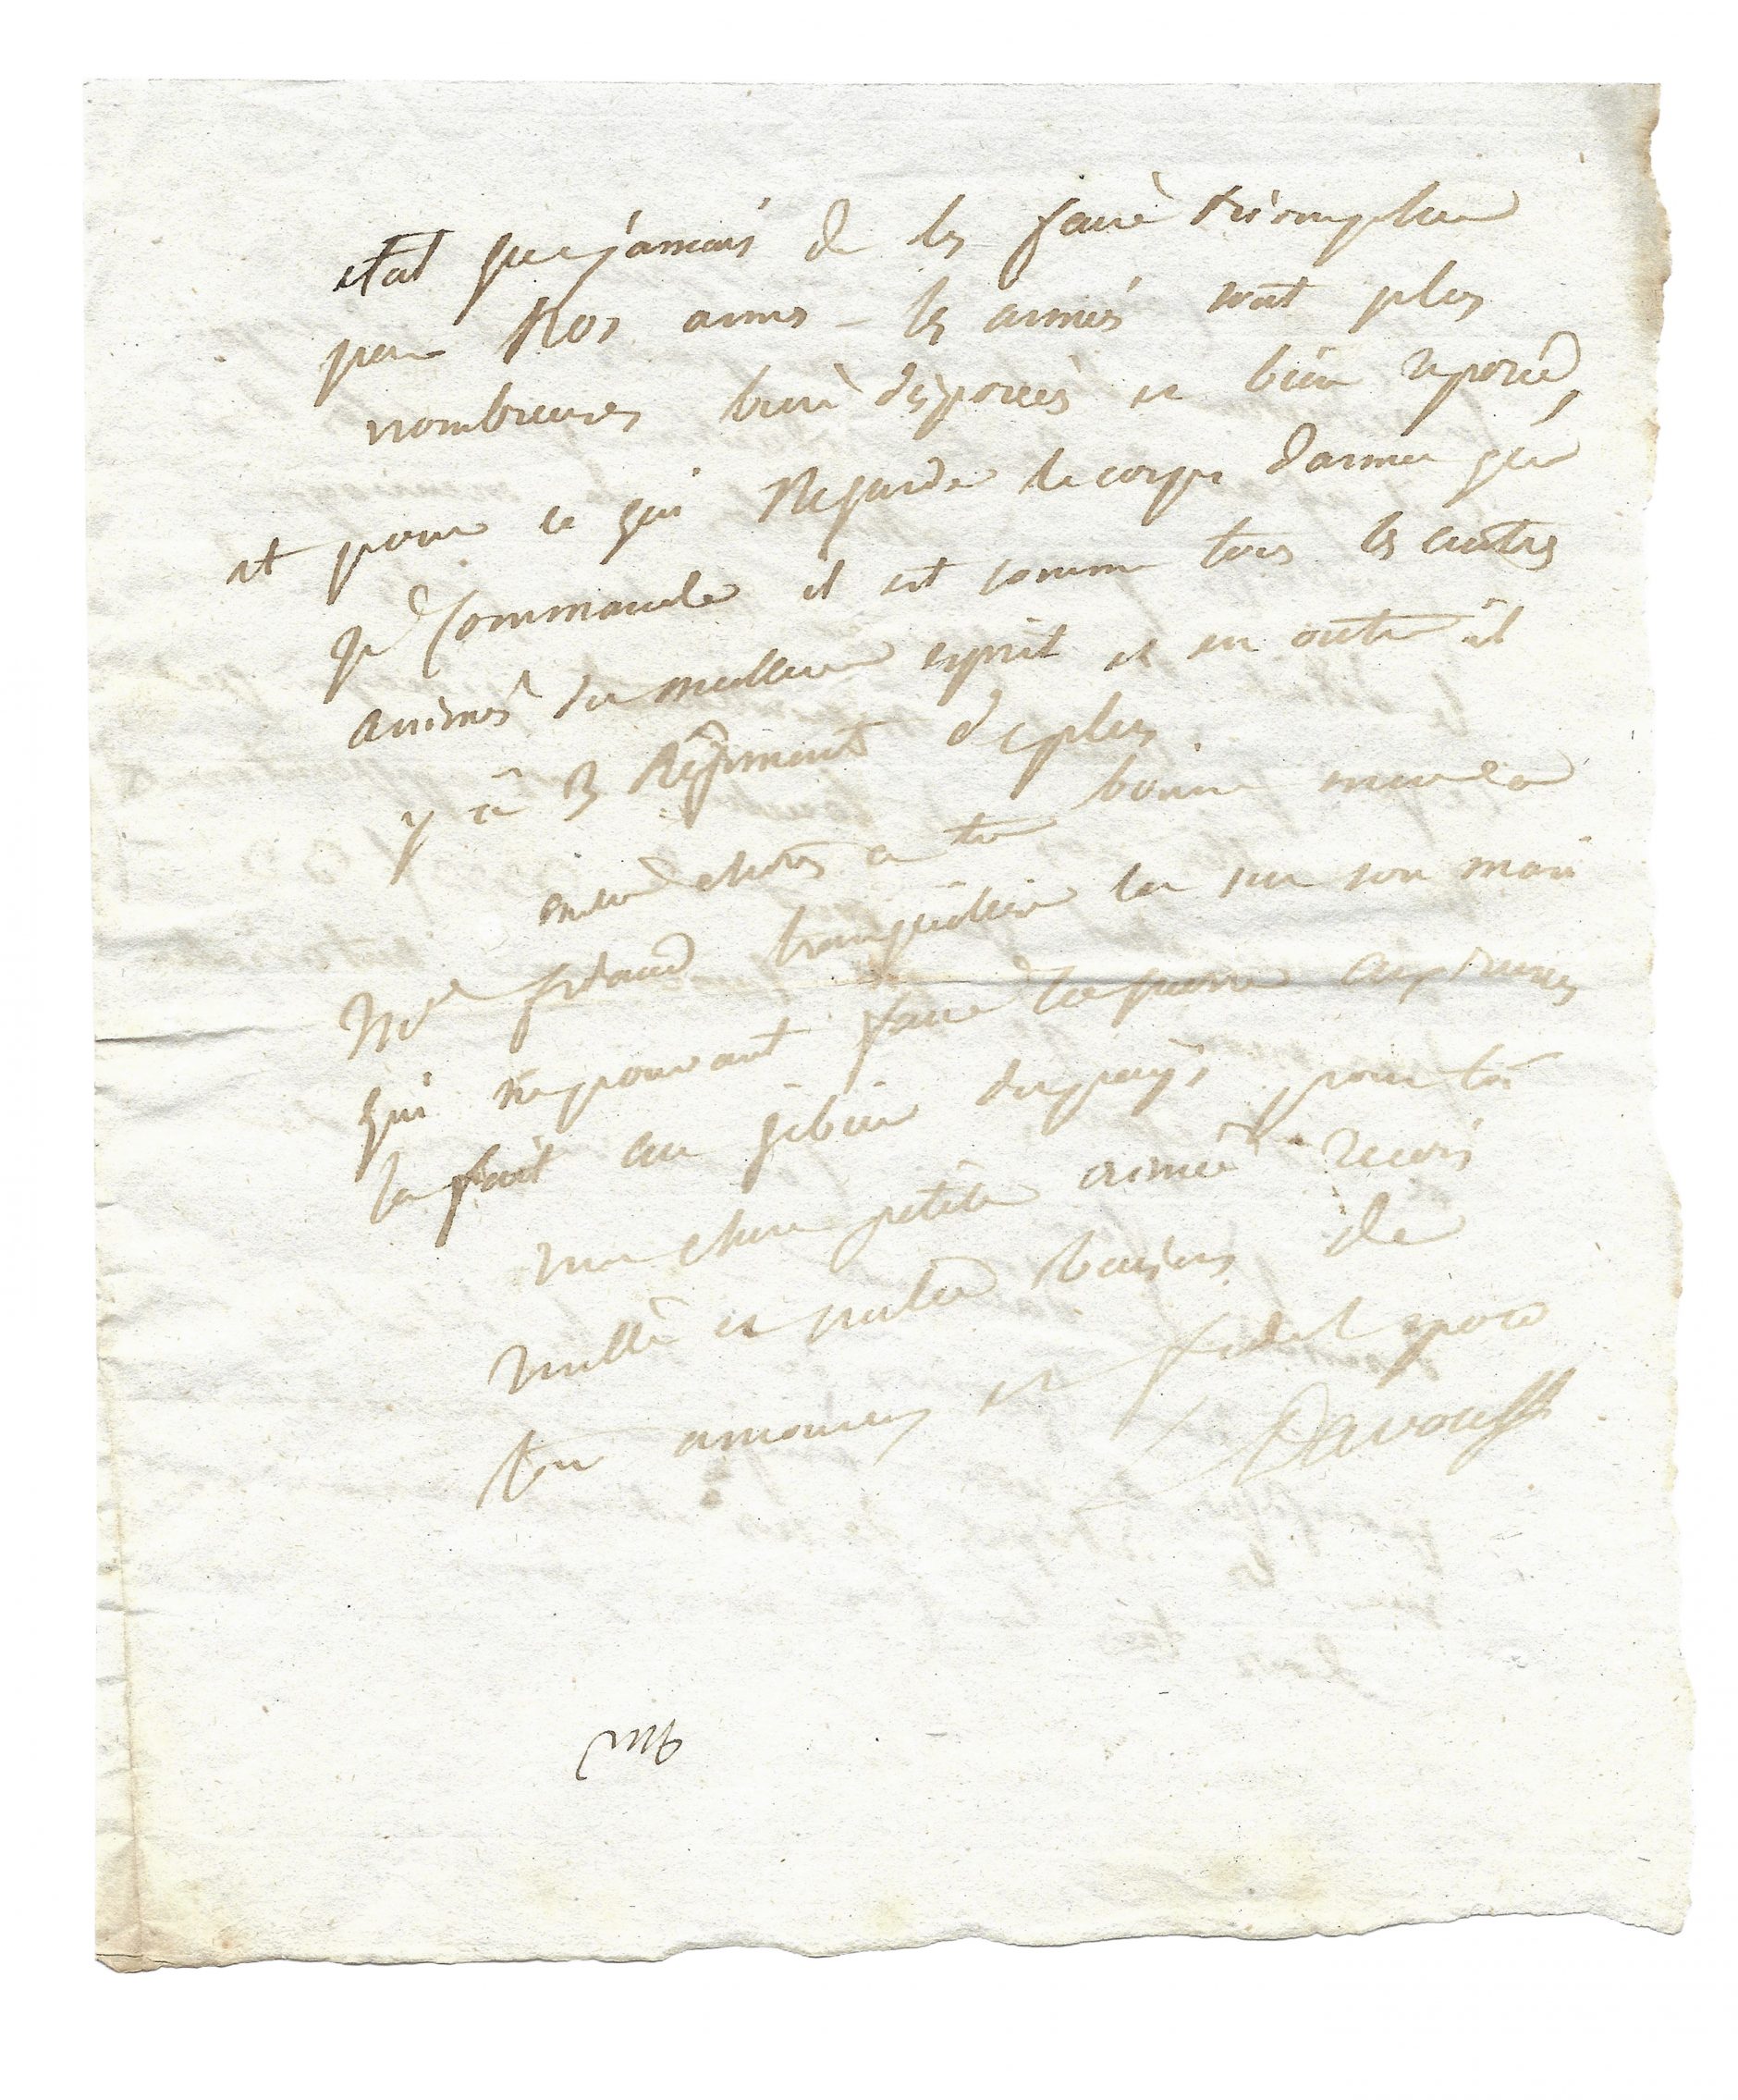 etat que jamais de les faire triompher
par Nos armes – les armées sont plus
nombreuses bien disposées et bien reposée,
et pour ce qui Regarde le corps d'armée que
je Commande il est comme tous les autres
animés du meilleur esprit et en outre il
y a 3 Régiments de plus
choses a ta bonne mere
Md friand tranquilise la sur son mari
qui ne pouvant faire la guerre aux
la fait au gibier du pays, pour toi
ma chere petite aimée recois
mille et mille baisers de
ton amoureux et fidel epoux
L Davoust